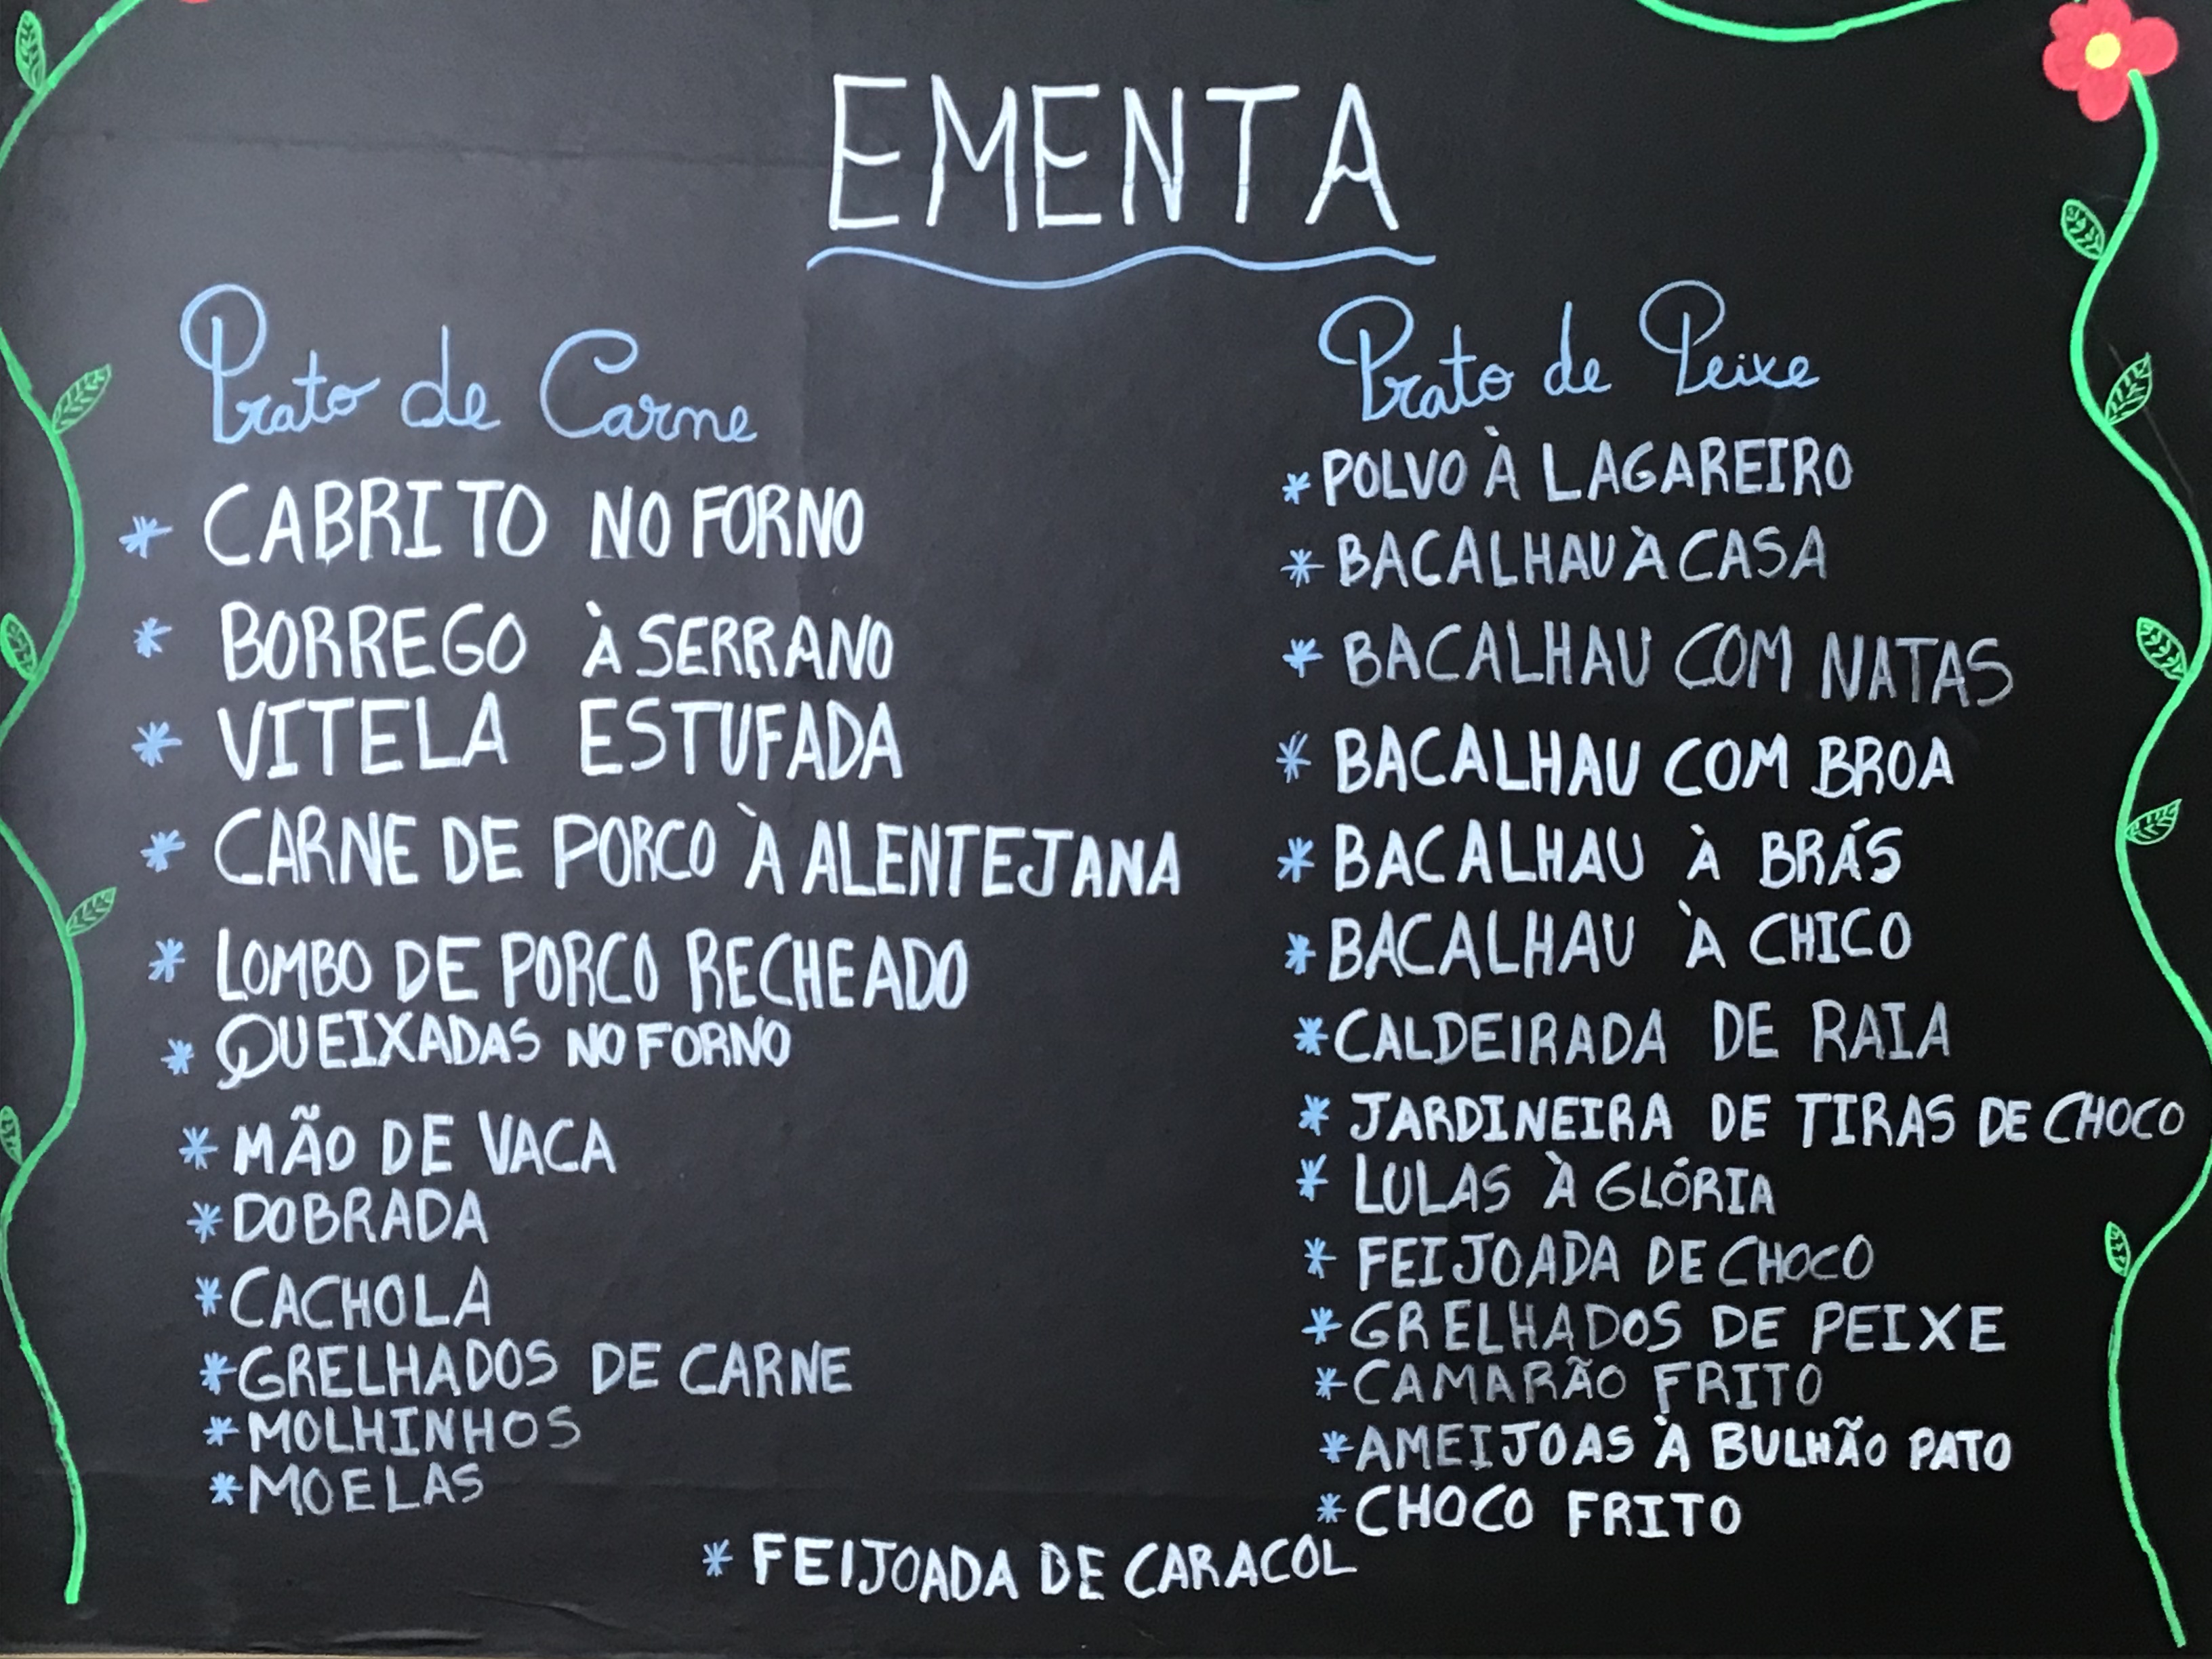 EMENTA
Prato de Carne
* CABRITO NO FORNO
* BORREGO À SERRANO
* VITELA ESTUFADA
* CARNE DE PORCO À ALENTEJANA
* LOMBO DE PORCO RECHEADO
* QUEIXADAS NO FORNO
* MÃO DE VACA
* DOBRADA
* CACHOLA
* GRELHADOS DE CARNE
* MOLHINHOS
* MOELAS
Prato de Peixe
* POLVO À LAGAREIRO
* BACALHAU À CASA
* BACALHAU COM NATAS
* BACALHAU COM BROA
* BACALHAU À BRÁS
* BACALHAU À CHICO
* CALDEIRADA DE RAIA
* JARDINEIRA DE TIRAS DE CHOCO
* LULAS À GLÓRIA
* FEIJOADA DE CHOCO
* GRELHADOS DE PEIXE
* CAMARÃO FRITO
* AMEIJOAS À BULHÃO PATO
* CHOCO FRITO
* FEIJOADA DE CARACOL